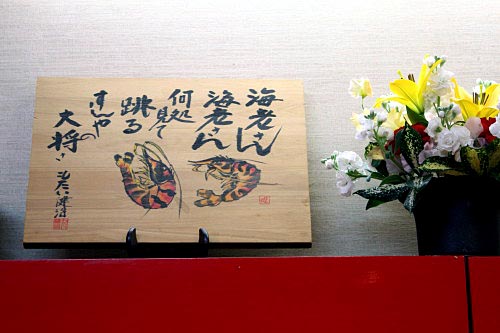 海老さん
海老さん
何処見て
跳る
すしやの
大将さ